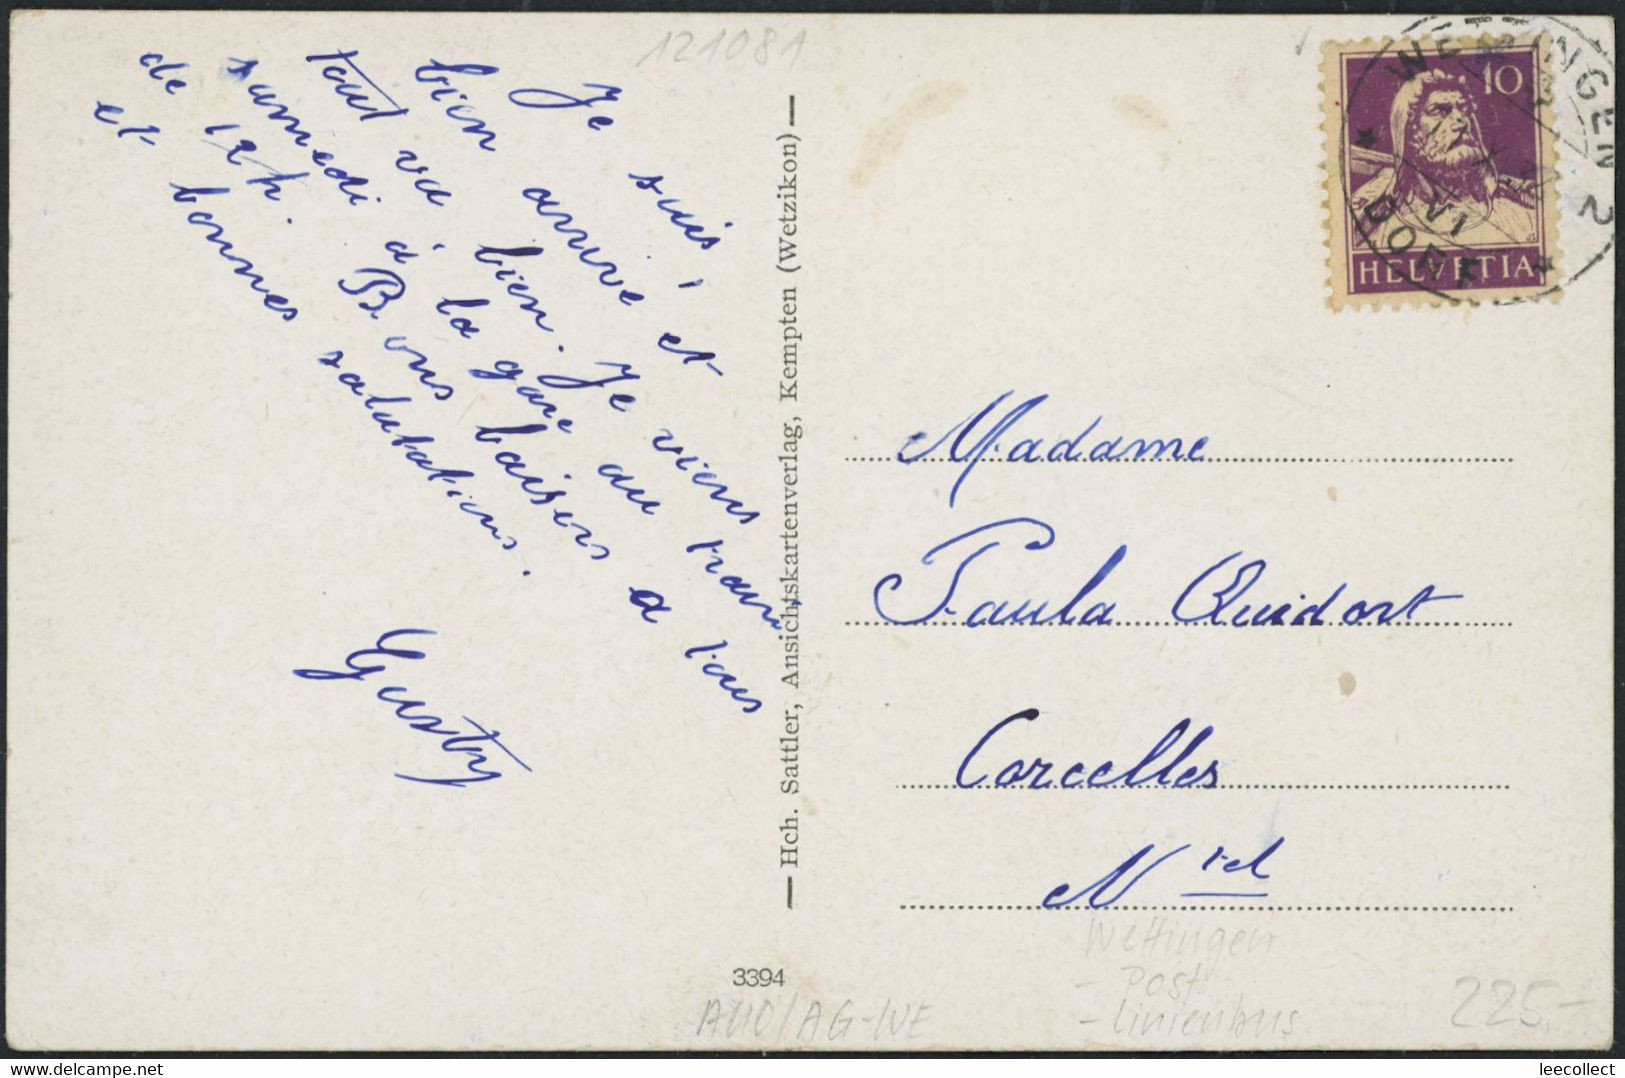 121081
Je suis
bien arrivé et
tout va bien. Je viens
samedi à la gare au train
de 12h. Bons baisers a tous
et bonnes salutations.
Gusty
— Hch. Sattler, Ansichtskartenverlag, Kempten (Wetzikon) —
3394
WETTINGEN 2
DORF
VI
10
HELVETIA
Madame
Paula Quidort
Corcelles
Ntel
Wettingen
- Post
- Linienbus
AUO/AG-WE
225.-
leecollect